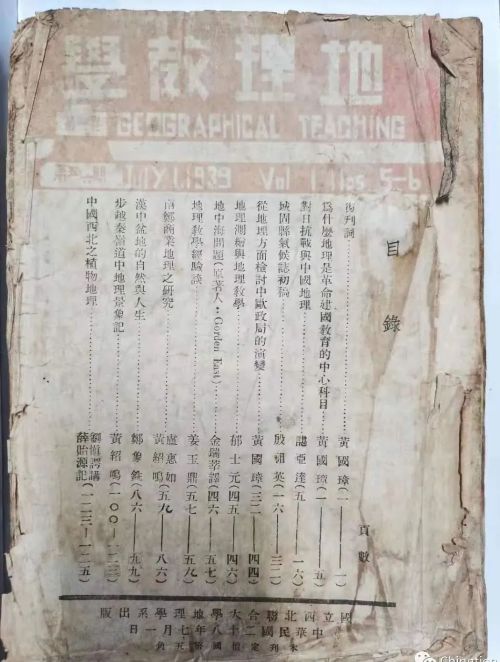 地理教學
GEOGRAPHICAL TEACHING
JULY 1, 1939 Vol 1. Nos 5-6
目錄 頁數
復刊詞……黃國璋(一——一)
為什麼地理是革命建國教育的中心科目……黃國璋(一——五)
對日抗戰與中國地理……諶亞達(五——一六)
城固縣氣候誌初稿……殷祖英(一六——三二)
從地理方面檢討中歐政局的演變……黃國璋(三二——四四)
地理測繪與地理教學……郁士元(四五——四六)
地中海問題(原著人:Gorden East)……金瑞莘譯(四六——五七)
地理教學經驗談……姜玉鼎(五七——五九)
南鄭商業地理之研究……盧惠如 黃紹鳴(五九——八六)
漢中盆地的自然與人生……鄭象銑(八六——九九)
步越秦嶺道中地理景象記……黃紹鳴(一〇〇——一二三)
中國西北之植物地理……劉慎諤講 薛貽源記(一二三——一二五)
國立西北聯合大學地理學系出版
中華民國二十八年七月一日
本刊定價國幣五角